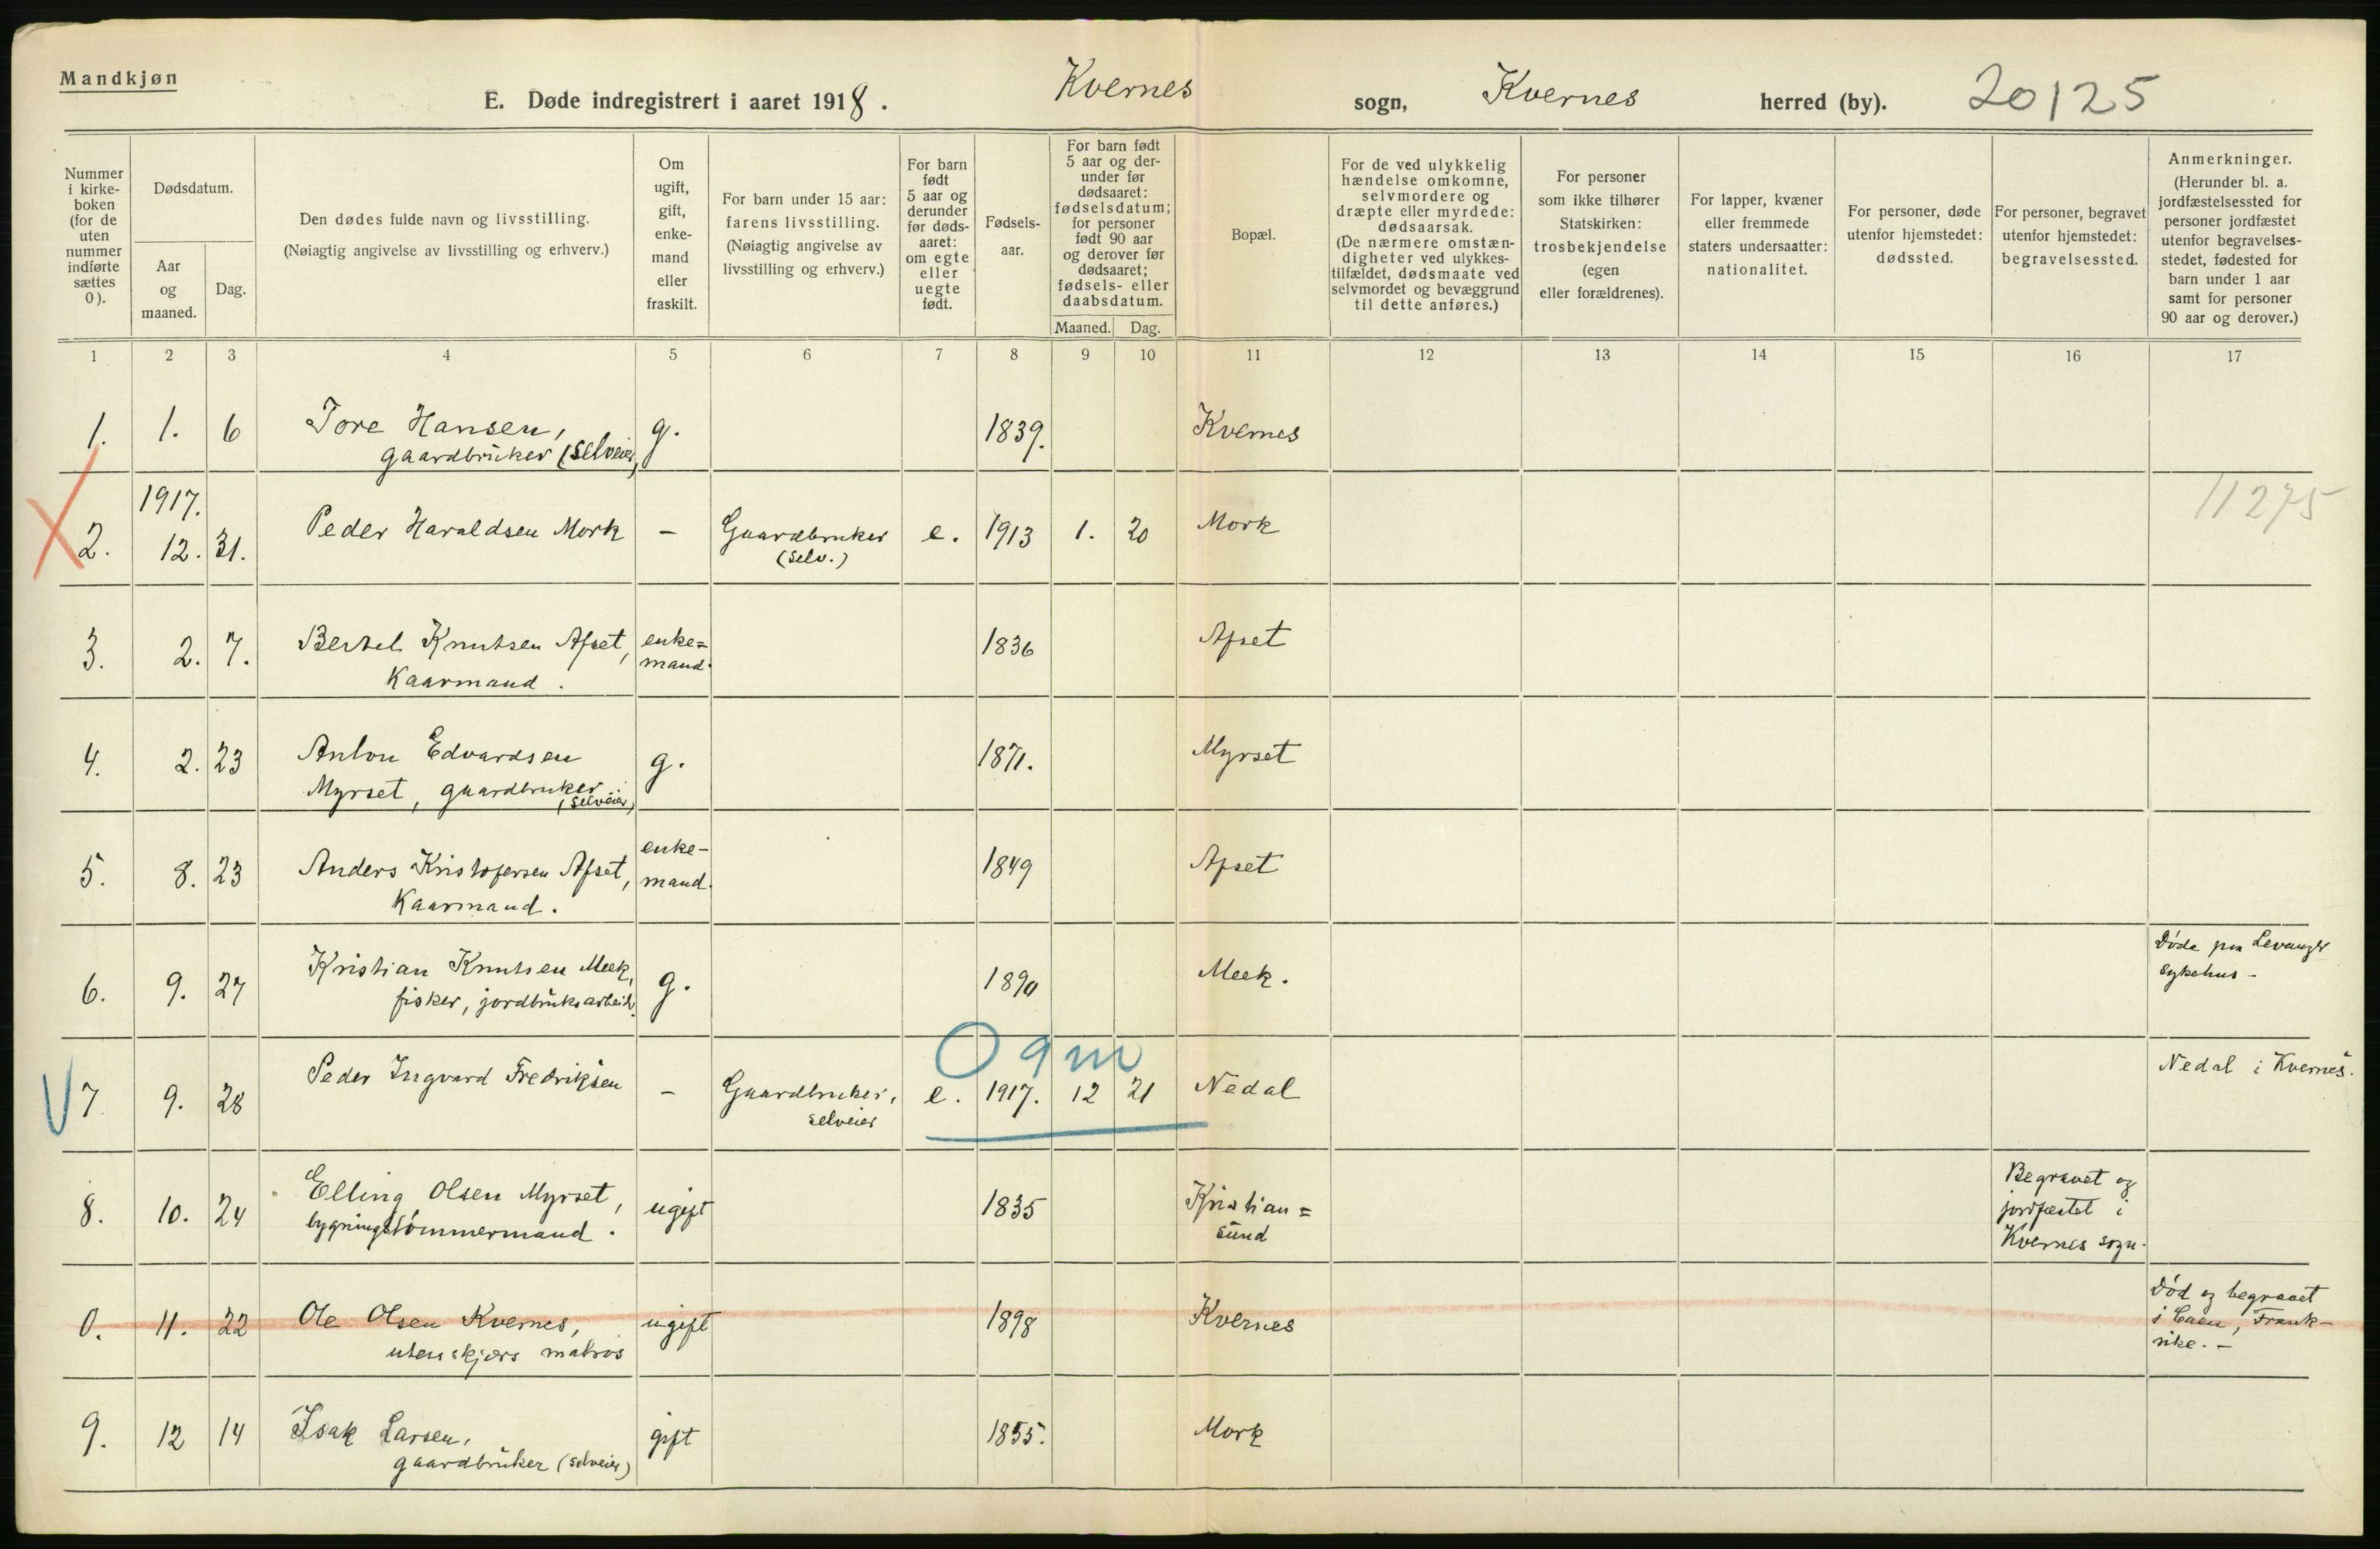 Mandkjøn
E. Døde indregistrert i aaret 1918. Kvernes sogn, Kvernes herred (by). 20125
Nummer
i kirke-
boken
(for de
uten
nummer
indførte
sættes
0).
Dødsdatum.
Aar
og
maaned.
Dag.
Den dødes fulde navn og livsstilling.
(Nøiagtig angivelse av livsstilling og erhverv.)
Om
ugift,
gift,
enke-
mand
eller
fraskilt.
For barn under 15 aar:
farens livsstilling.
(Nøiagtig angivelse av
livsstilling og erhverv.)
For barn
født
5 aar og
derunder
før døds-
aaret:
om egte
eller
uegte
født.
Fødsels-
aar.
For barn født
5 aar og der-
under før
dødsaaret:
fødselsdatum;
for personer
født 90 aar
og derover før
dødsaaret;
fødsels- eller
daabsdatum.
Maaned. Dag.
Bopæl.
For de ved ulykkelig
hændelse omkomne,
selvmordere og
dræpte eller myrdede:
dødsaarsak.
(De nærmere omstæn-
digheter ved ulykkes-
tilfældet, dødsmaate ved
selvmordet og bevæggrund
til dette anføres.)
For personer
som ikke tilhører
Statskirken:
trosbekjendelse
(egen
eller forældrenes).
For lapper, kvæner
eller fremmede
staters undersaatter:
nationalitet.
For personer, døde
utenfor hjemstedet:
dødssted.
For personer, begravet
utenfor hjemstedet:
begravelsessted.
Anmerkninger.
(Herunder bl. a.
jordfæstelsessted for
personer jordfæstet
utenfor begravelses-
stedet, fødested for
barn under 1 aar
samt for personer
90 aar og derover.)
1 2 3 4 5 6 7 8 9 10 11 12 13 14 15 16 17
1. 1. 6 Tore Hansen, g. 1839. Kvernes
gaardbruker (selveier)
1917. 11275
2. 12. 31. Peder Haraldsen Mork - Gaardbruker e. 1913 1. 20 Mork
(selv.)
3. 2. 7. Bertel Knutsen Afset, enke= 1836 Afset
Kaarmand. mand.
4. 2. 23 Anton Edvardsen g. 1871. Myrset
Myrset, gaardbruker
(selveier)
5. 8. 23 Anders Kristofersen Afset, enke- 1849 Afset
Kaarmand. mand.
6. 9. 27 Kristian Knutsen Meek, g. 1890 Meek. Døde paa Levanger
fisker, jordbruksarbeid. sykehus -
0 9 m
7 9. 28 Peder Ingvard Fredriksen - Gaardbruker, e. 1917. 12 21 Nedal Nedal i Kvernes.
selveier
8. 10. 24 Elling Olsen Myrset, ugift 1835 Kristian= Begravet og
bygningstømmermand. sund jordfæstet i
Kvernes sogn.
0. 4. 22 Ole Olsen Kvernes, ugift 1898 Kvernes Død og begravet
utenskjærs matros i Caen, Frank-
rike. -
9. 12 14 Isak Larsen, gift 1855. Mork
gaardbruker (selveier)